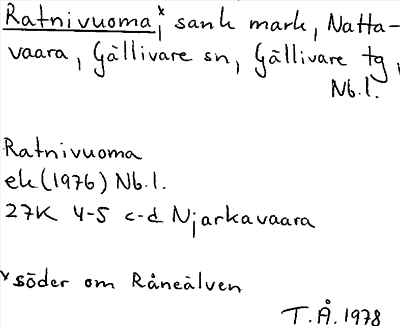 Ratnivuoma,ˣ sank mark, Natta-
vaara, Gällivare sn, Gällivare tg,
Nb.l.
Ratnivuoma
ek (1976) Nb.l.
27K 4-5 c-d Njarkavaara
ˣsöder om Råneälven
T.Å. 1978